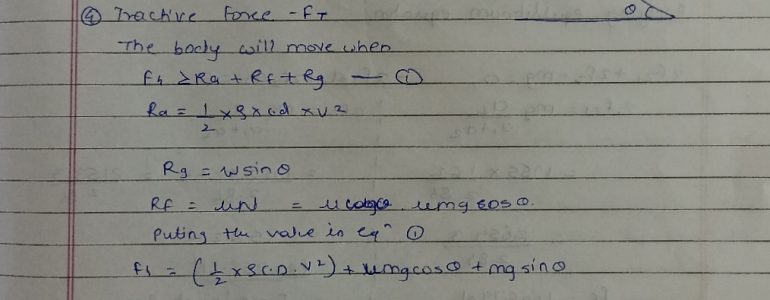 ④ Tractive Force - FT
θ
The body will move when
Ft ≥ Ra + Rf + Rg — ①
Ra = 1/2 × ρ × c.d × v²
Rg = w sin θ
Rf = μN = μmg cos θ.
Puting the value in eqⁿ ①
Ft = (1/2 × ρ C.D. V²) + μmg cos θ + mg sin θ